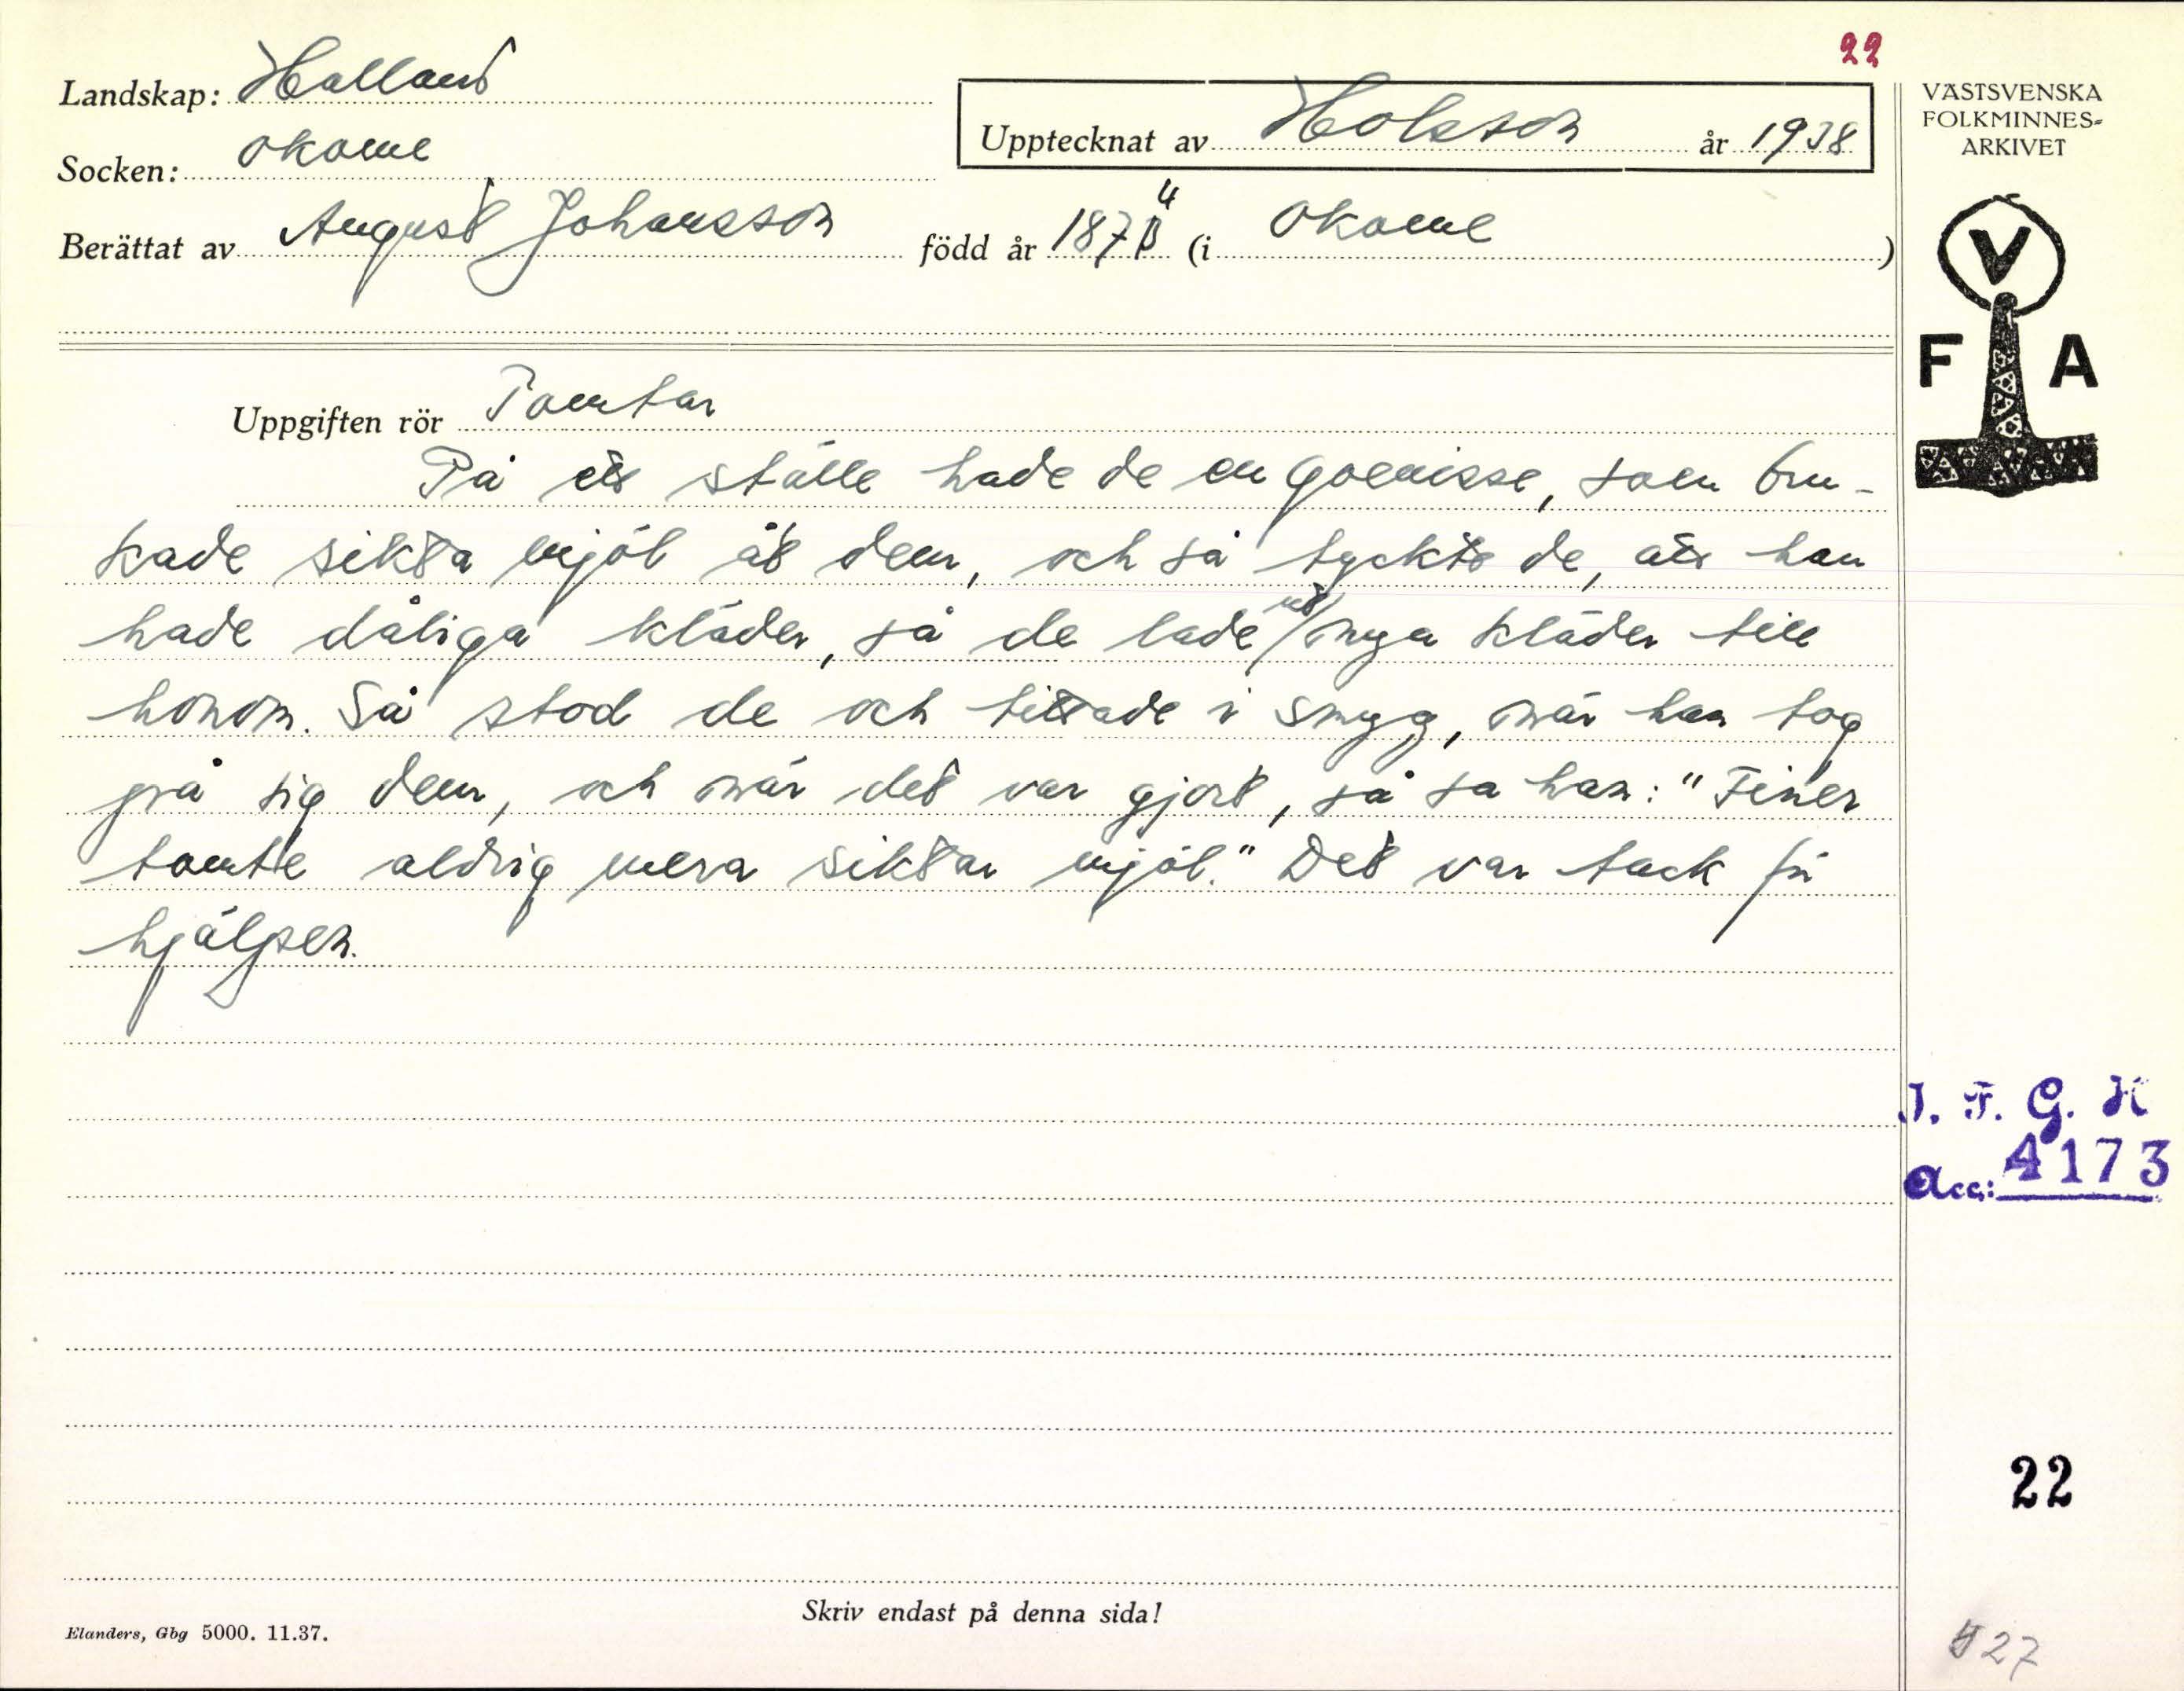 22
Landskap: Halland
Socken: Okome
Upptecknat av Holsson år 1938
Berättat av August Johansson född år 1874 (i Okome)
VÄSTSVENSKA
FOLKMINNES-
ARKIVET
V
F A
Uppgiften rör Tomtar
På ett ställe hade de en goenisse, som bru-
kade sikta mjöl åt dem, och så tyckte de, att han
hade dåliga kläder, så de lade ut nya kläder till
honom. Så stod de och tittade i smyg, när han tog
på sig dem, och när det var gjort, så sa han: "Finer
tomte aldrig mera siktar mjöl." Det var tack för
hjälpen.
I. F. G. H
Acc: 4173
22
Skriv endast på denna sida!
Elanders, Gbg 5000. 11.37.
27